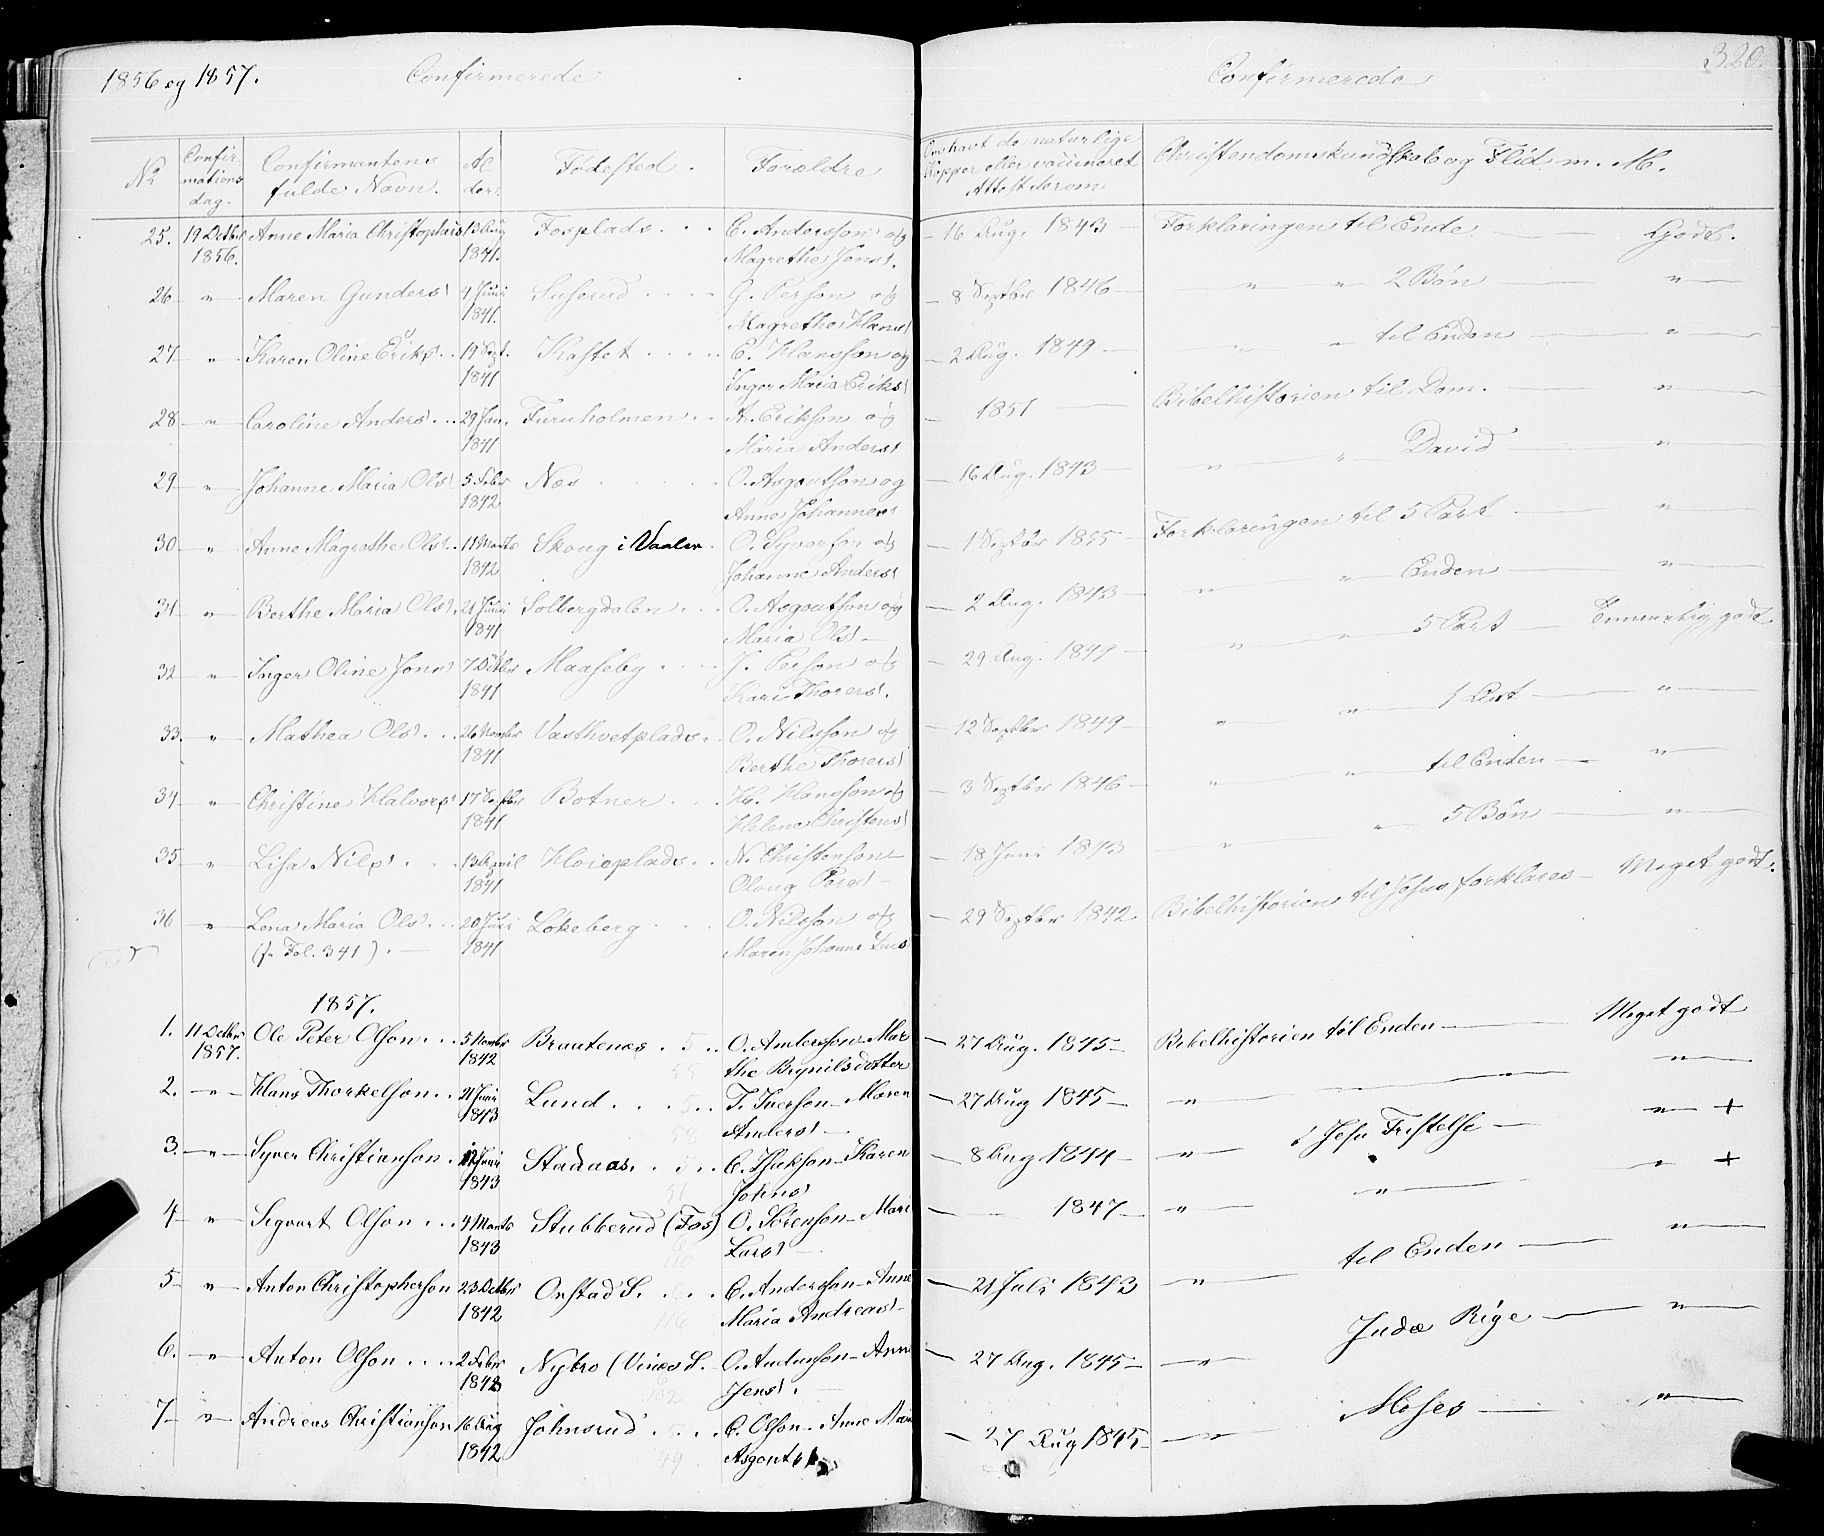 1856 og 1857. Confirmerede Confirmerede 320.
No Confirmations dag. Confirmantens fulde Navn. Alder. Fødested. Forældre Om havt de naturlige Kopper eller vaccineret Attest derom Christendomskundskab og Flid m. M.
25. 19 Octbr 1856. Anne Maria Christophers 13 Aug 1841. Fosplads C. Andersson og Magrethe Jens. 16 Aug. 1843 Forklaringen til Ende Godt.
26 " Maren Gunders 4 Juni 1841. Suserud G. Person og Magrethe Hans 8 Septbr 1846 " " 2 Bøn "
27 " Karen Oline Eriks 19 Sept. 1841 Kastet E. Hansson og Inger Maria Eriks 2 Aug. 1849 " " til Enden "
28 " Caroline Anders 29 Jan. 1841 Furuholmen A. Erikson og Maria Anders 1851 Bibelhistorien til Dom. "
29 " Johanne Maria Ols 5 Febr 1842 Nes O. Asgoutson og Anne Johannes 16 Aug. 1843 " " David "
30 " Anne Magrethe Ols 11 Marts 1842 Skoug i Vaaler O. Syverson og Johanne Anders 1 Septbr 1855 Forklaringen til 5 Part "
31 " Berthe Maria Ols 21 Juni 1841 Solbergdalen O. Asgoutson og Maria Ols 2 Aug. 1843 " " Enden "
32 " Inger Oline Jens 7 Octbr 1841 Maaseby J. Person og Kari Thorers. 29 Aug. 1849 " " 5 Part Temmelig godt
33. " Mathea Ols 26 Novmbr 1841 Vasthvetplads O. Nilsson og Berthe Thorers 12 Septbr 1849 " " 1 Art "
34 " Christine Halvors 17 Septbr 1841 Botner H. Hansson og Helene Christens 3 Septbr 1846 " " til Enden "
35 " Lisa Nils 13 April 1841 Hoioplads N. Christenson Oloug Pers 18 Juni 1843 " " 5 Bøn "
36 " Lena Maria Ols (fr Fol. 341) 20 Juni 1841 Lokeberg O. Nilsson og Maren Johanne Lars 29 Septbr 1842 Bibelhistorien til Jesus forklares Meget godt.
1857.
1. 11 Octbr 1857. Ole Peter Olson 5 Novmbr 1842 Brautenes O. Andersson Marthe Brynilsdotter 27 Aug. 1845 Bibelhistorien til Enden Meget godt
2. " Hans Thorkelson 21 Juni 1843 Lund T. Iverson Maren Anders 27 Aug 1845 " "
3. " Syver Christianson Juni 1843 Stadaas C. Isakson Karen Johns 8 Aug 1844 " Jesu Fristelse " +
4 " Sigvart Olson 4 Marts 1843 Stubberud (Fos) O. Sörenson Mari Lars 1847 " " " +
5 " Anton Christopherson 23 Octbr 1842 Onstad S. C. Andersson Anne Maria Andreas 21 Juli 1843 " til Enden "
6. " Anton Olson 2 Febr 1843 Nybro (Vines S. O. Anderson Anne Jens. 27 Aug. 1845 " Judæ Rige "
7 " Andreas Christianson 16 Aug 1842 Johnsrud C. Olson Anne Mari Asgouts 27 Aug 1845 " Moses "